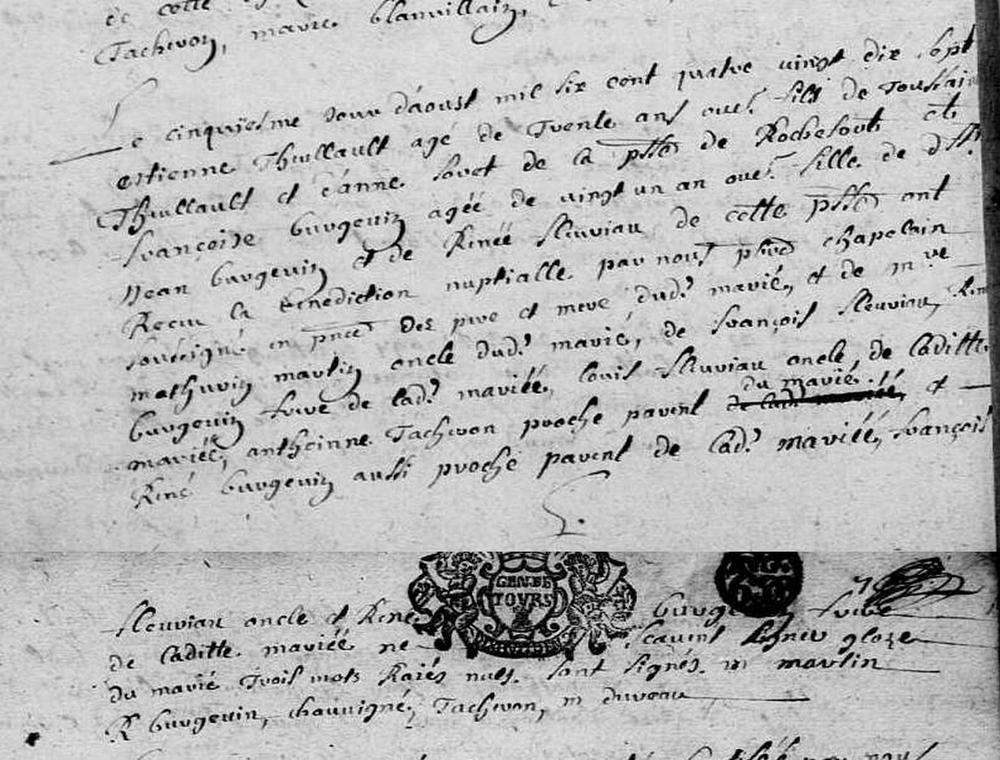 de cette
Tacheron, marie blanvillain,
Le cinquiesme Jour d'aoust mil six cent quatre vingt dix sept
estienne Thuillault agé de Trente ans ou e? fils de Toussain
Thuillault et d'anne Sovet de la psse de Rochefort et
françoise burgevin agée de vingt un an ou e? fille de dfft
Jean burgevin et de Renée fleuriau de cette psse ont
Receu la benediction nuptialle par nous pbre chapelain
soubsigné en pnce des pere et mere dud? marié, et de mre
mathurin martin oncle dud? marié, de françois fleuriau, Rene
burgevin frere de lad? mariée, louis fleuriau oncle, de laditte
du marié
mariée, antheinne Tacheron proche parent de lad? mariée, et
René burgevin aussi proche parent de lad? mariée, françois
fleuriau oncle et René burge frere
de laditte mariée ne scavent signer gloze
du marié Trois mots Raiés nuls. sont signés. m martin
R burgevin, chauvigné, Tacheron, m duveau
GEN DE
TOURS